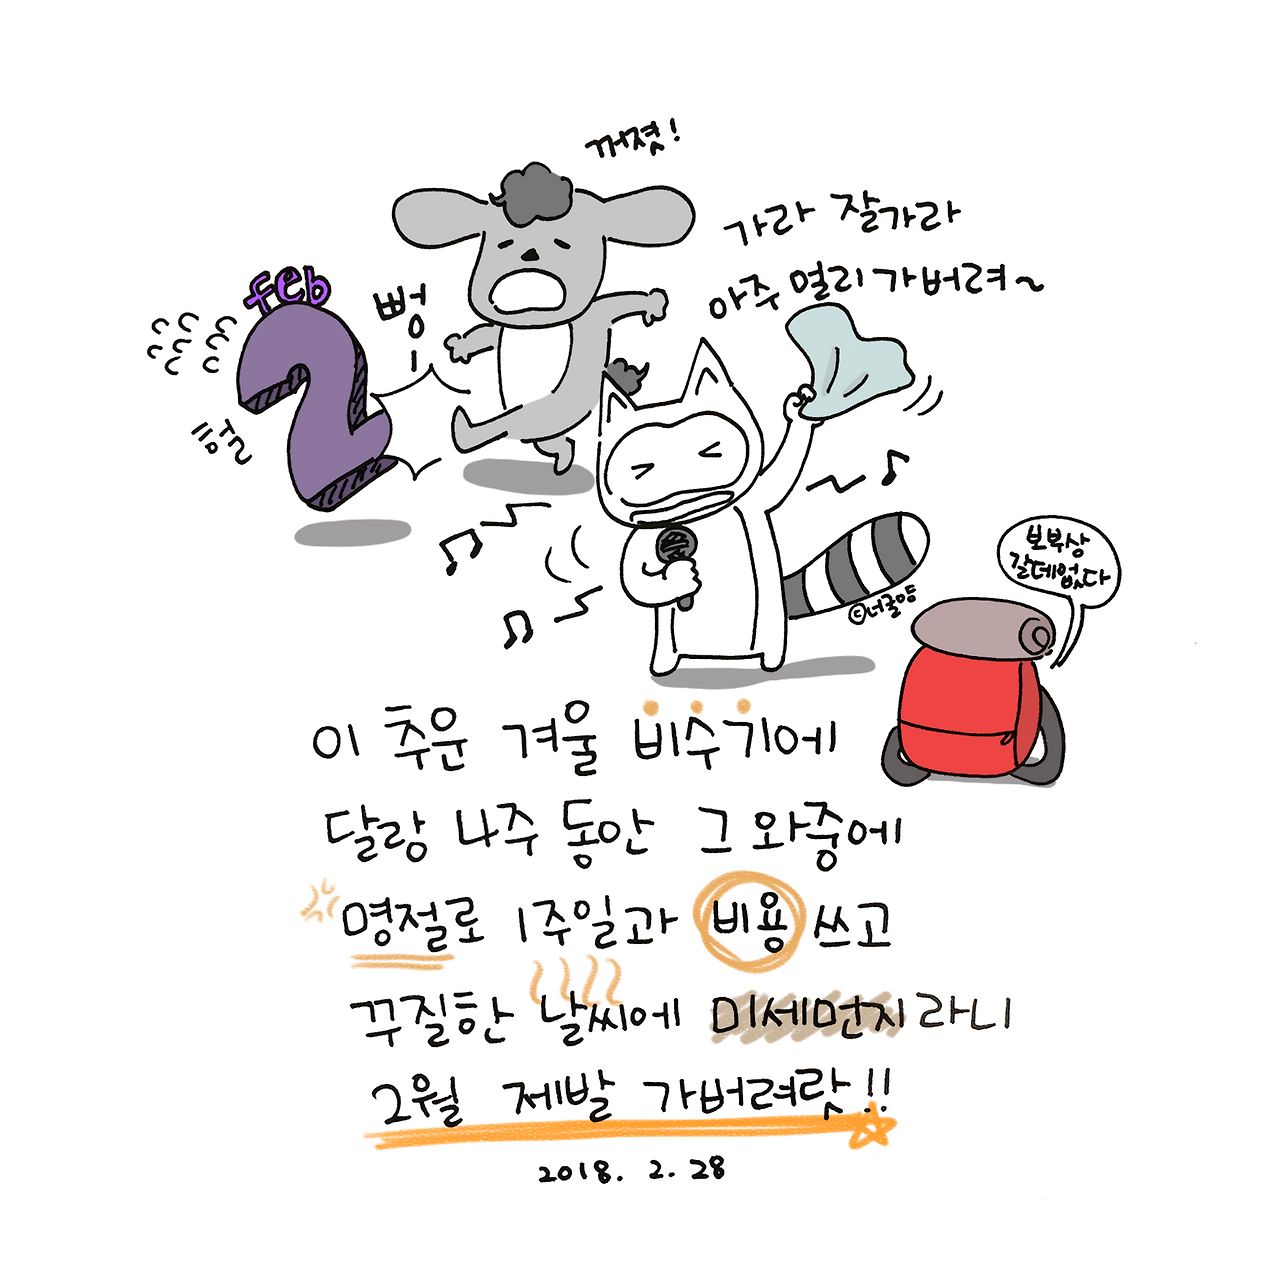 꺼졋!
가라 잘가라
아주 멀리 가버려~
feb
2
뻥
헐
보부상
갈데없다
©너굴양
이 추운 겨울 비수기에
달랑 4주 동안 그 와중에
명절로 1주일과 비용 쓰고
꾸질한 날씨에 미세먼지라니
2월 제발 가버려랏!!
2018. 2. 28